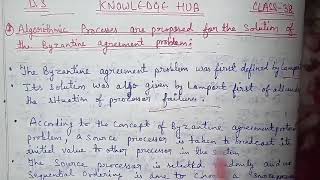 D.S KNOWLEDGE HUB CLASS-38
Algorithmic Processes are proposed for the Solution of
the Byzantine agreement problem:
• The Byzantine agreement problem was first defined by Lamport
• Its solution was also given by Lamport first of all under
the situation of processor failure.
• According to the concept of Byzantine agreement
problem, a source processor is taken to broadcast its
initial value to other processor in the
• The Source processor is
Sequential Ordering is